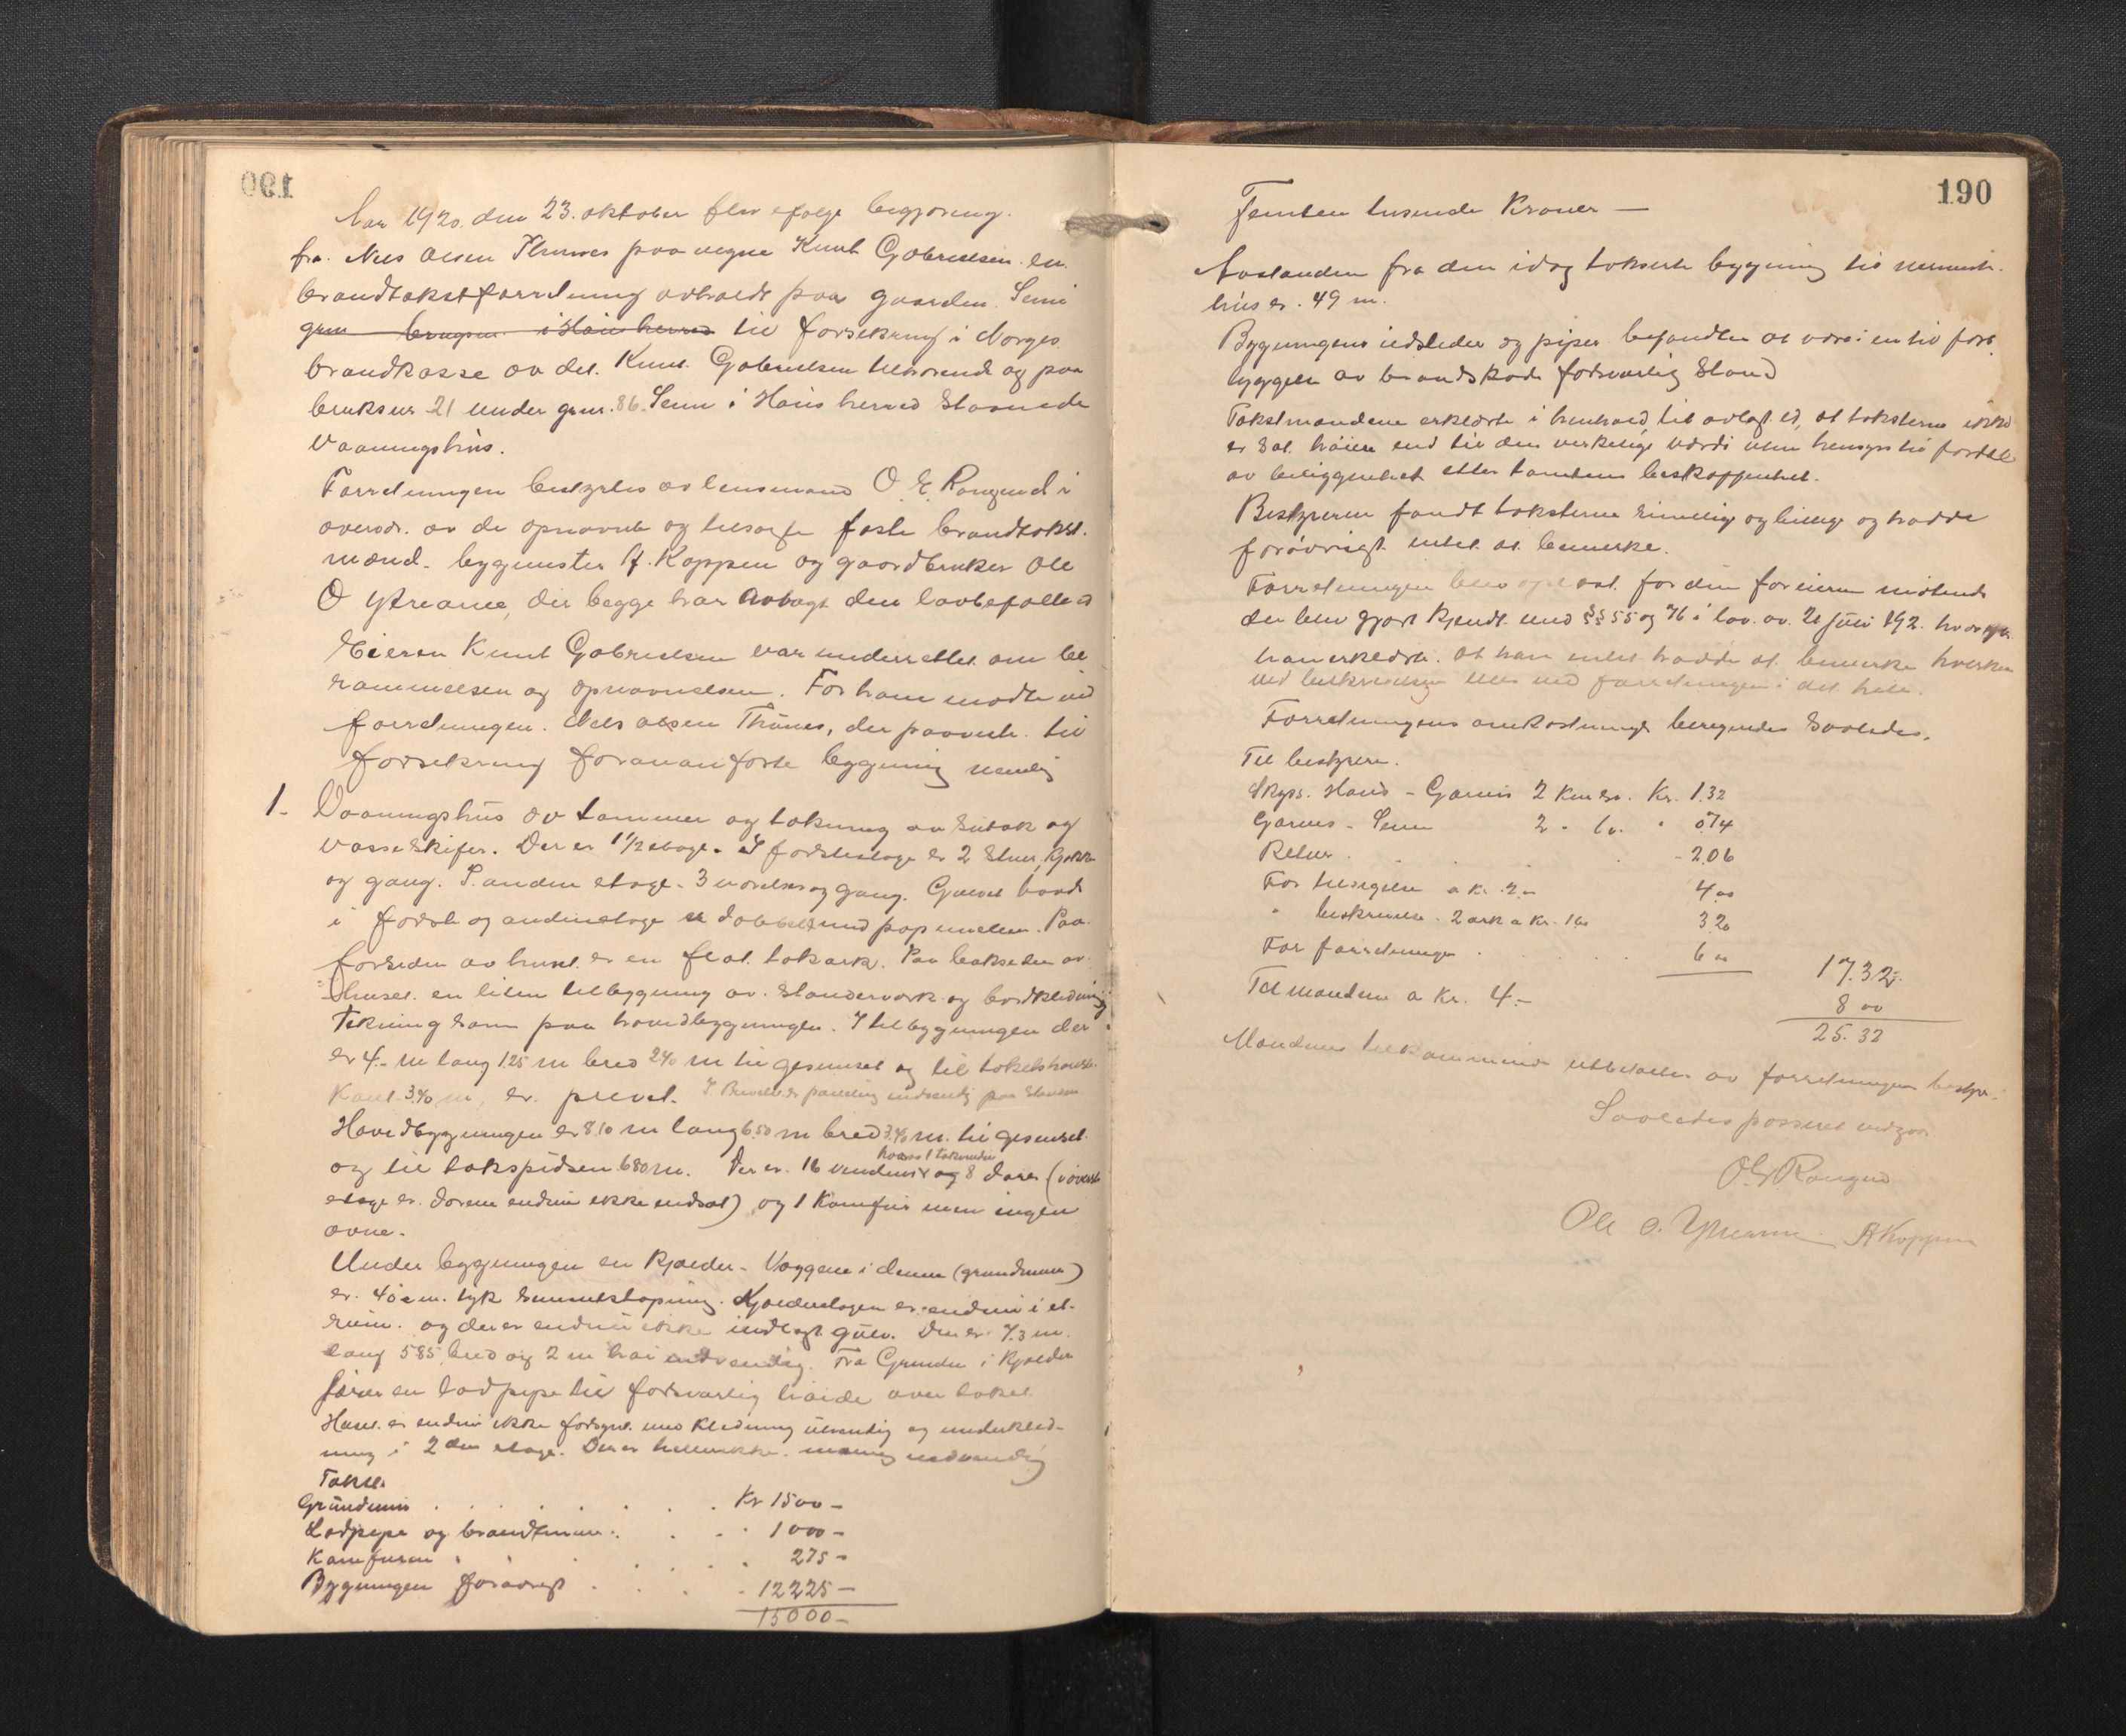 190
Aar 1920 den 23. oktober blev efølge begjæring
fra Nils Olsen Thunes paa vegne Knut Gabrielsen en
brandtakstforretning avholdt paa gaarden Senn
gnr brugsnr i Haus herred til forsikring i Norges
brandkasse av det Knut Gabrielsen tilhørende og paa
bruksnr 21 under gnr. 86 Senn i Haus herred staaende
vaaningshus.
Forretningen bestyrtes av lensmand O. E. Rongved i
overvær av de opnævnte og tilsagte faste brandtakst-
mænd bygmester A. Koppen og gaardbruker Ole
O Ytrearne, der begge har avlagt den lovbefalte ed
Eieren Knut Gabrielsen var underrettet om be
rammelsen og opnævnelsen. For ham mødte ved
forretningen Nils Olsen Thunes, der paaviste til
forsikring forananførte bygning nemlig
1. Vaaningshus av tømmer og tækning av sutak og
Vosseskifer. Der er 1½ etage. I første etage er 2 stuer, kjøkken
og gang. I anden etage 3 værelser og gang. Gulvet baade
i første og anden etage er dobbelt med pap imellem. Paa
forsiden av huset er en flat takark. Paa baksiden av
huset en liten tilbygning av standerverk og bordklædning
Tækning som paa hovedbygningen. I tilbygningen der
er 4.- m lang 1.25 m bred 2.40 m til gesimset og til takets høieste
kant 3.40 m, er prevet. I paneling indvendig paa
Hovedbygningen er 8.10 m lang 6.50 m bred 3.40 m. til gesimset
og til takspidsen 6.80 m. Der er 16 vinduer hvorav 1 takvindu og 8 døre (i øverste
etage er dørene endnu ikke indsat) og 1 komfur men ingen
ovne.
Under bygningen en kjælder. Væggene i denne (grundmur)
er 40 cm. tyk sementstøpning. Kjælderetagen er endnu i et
rum og der er endnu ikke indlagt gulv. Den er 7.3 m.
lang 5.85 bred og 2 m høi indvendig. Fra Grunden i kjælder
fører en lodpipe til forsvarlig høide over taket
Huset er endnu ikke forsynt med klædning utvendig og underklæd-
ning i 2den etage. Der er hellerikke maling indvendig
Takst.
Grundmur . . . . . . . Kr 1500 -
Lodpipe og brandmur . . . . 1000 -
Komfuren . . . . . 275 -
Bygningen forøvrigt . . . . 12225 -
15000 -
190
Femten tusende Kroner —
Avstanden fra den idag takserte bygning til nærmeste
hus er 49 m.
Bygningens ildsteder og piper befandtes at være i en til fore
byggelse av brandskade forsvarlig stand
Takstmændene erklærte i henhold til avlagt ed, at taksterne ikke
er sat høiere end til den virkelige værdi uten hensyn til fordel
av beliggenhet eller tomtens beskaffenhet.
Bestyreren fandt taksterne rimelige og billige og hadde
forøvrigt intet at bemerke.
Forretningen blev oplæst for den for eieren møtende
der blev gjort kjendt med §§ 55 og 76 i lov av 21 juli 192. hvorefter
han erklærte at han intet hadde at bemerke hverken
ved beskrivelsen eller ved forretningen i det hele.
Forretningens omkostninger beregnedes saaledes.
Til bestyreren.
Skyds. Haus - Garnes 2 km Kr. 1.32
Garnes - Senn 2 " " 0.74
Retur . . . . 2.06
For tilsigelse a kr. 2.- 4.00
" beskrivelse 2 ark a kr. 1.60 3.20
For forretningen . . . . 6.00
17.32
Til mændene a Kr. 4.- 8.00
25.32
Mændenes tilkommende utbetaltes av forretningens bestyr.
Saaledes passeret vidgaar
O. E. Rongved
Ole O. Ytrearne A Koppen